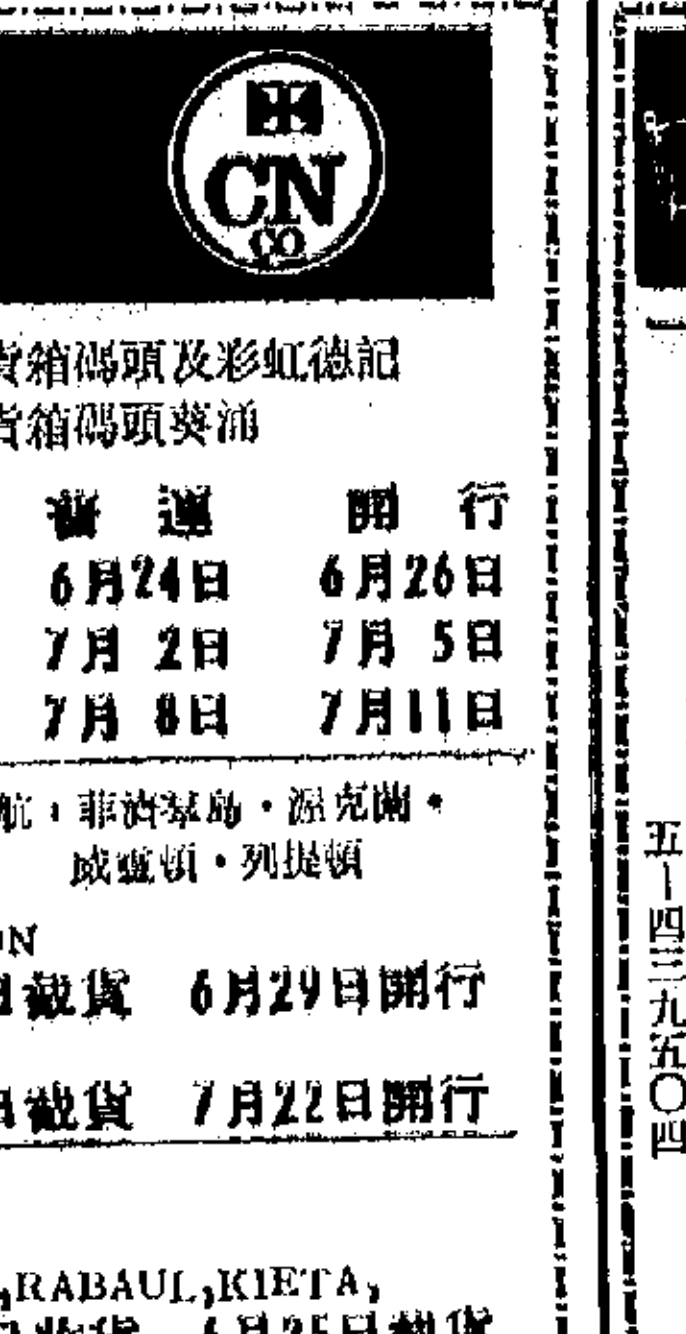 CN
CO
貨箱碼頭及彩虹德記
貨箱碼頭葵涌
運 開 行
6月24日 6月26日
7月 2日 7月 5日
7月 8日 7月11日
航・菲濟羣島・渥克蘭・
威靈頓・列提頓
ON
日截貨 6月29日開行
日截貨 7月22日開行
,RABAUL,KIETA,
6月25日截貨
五－四三九五〇四